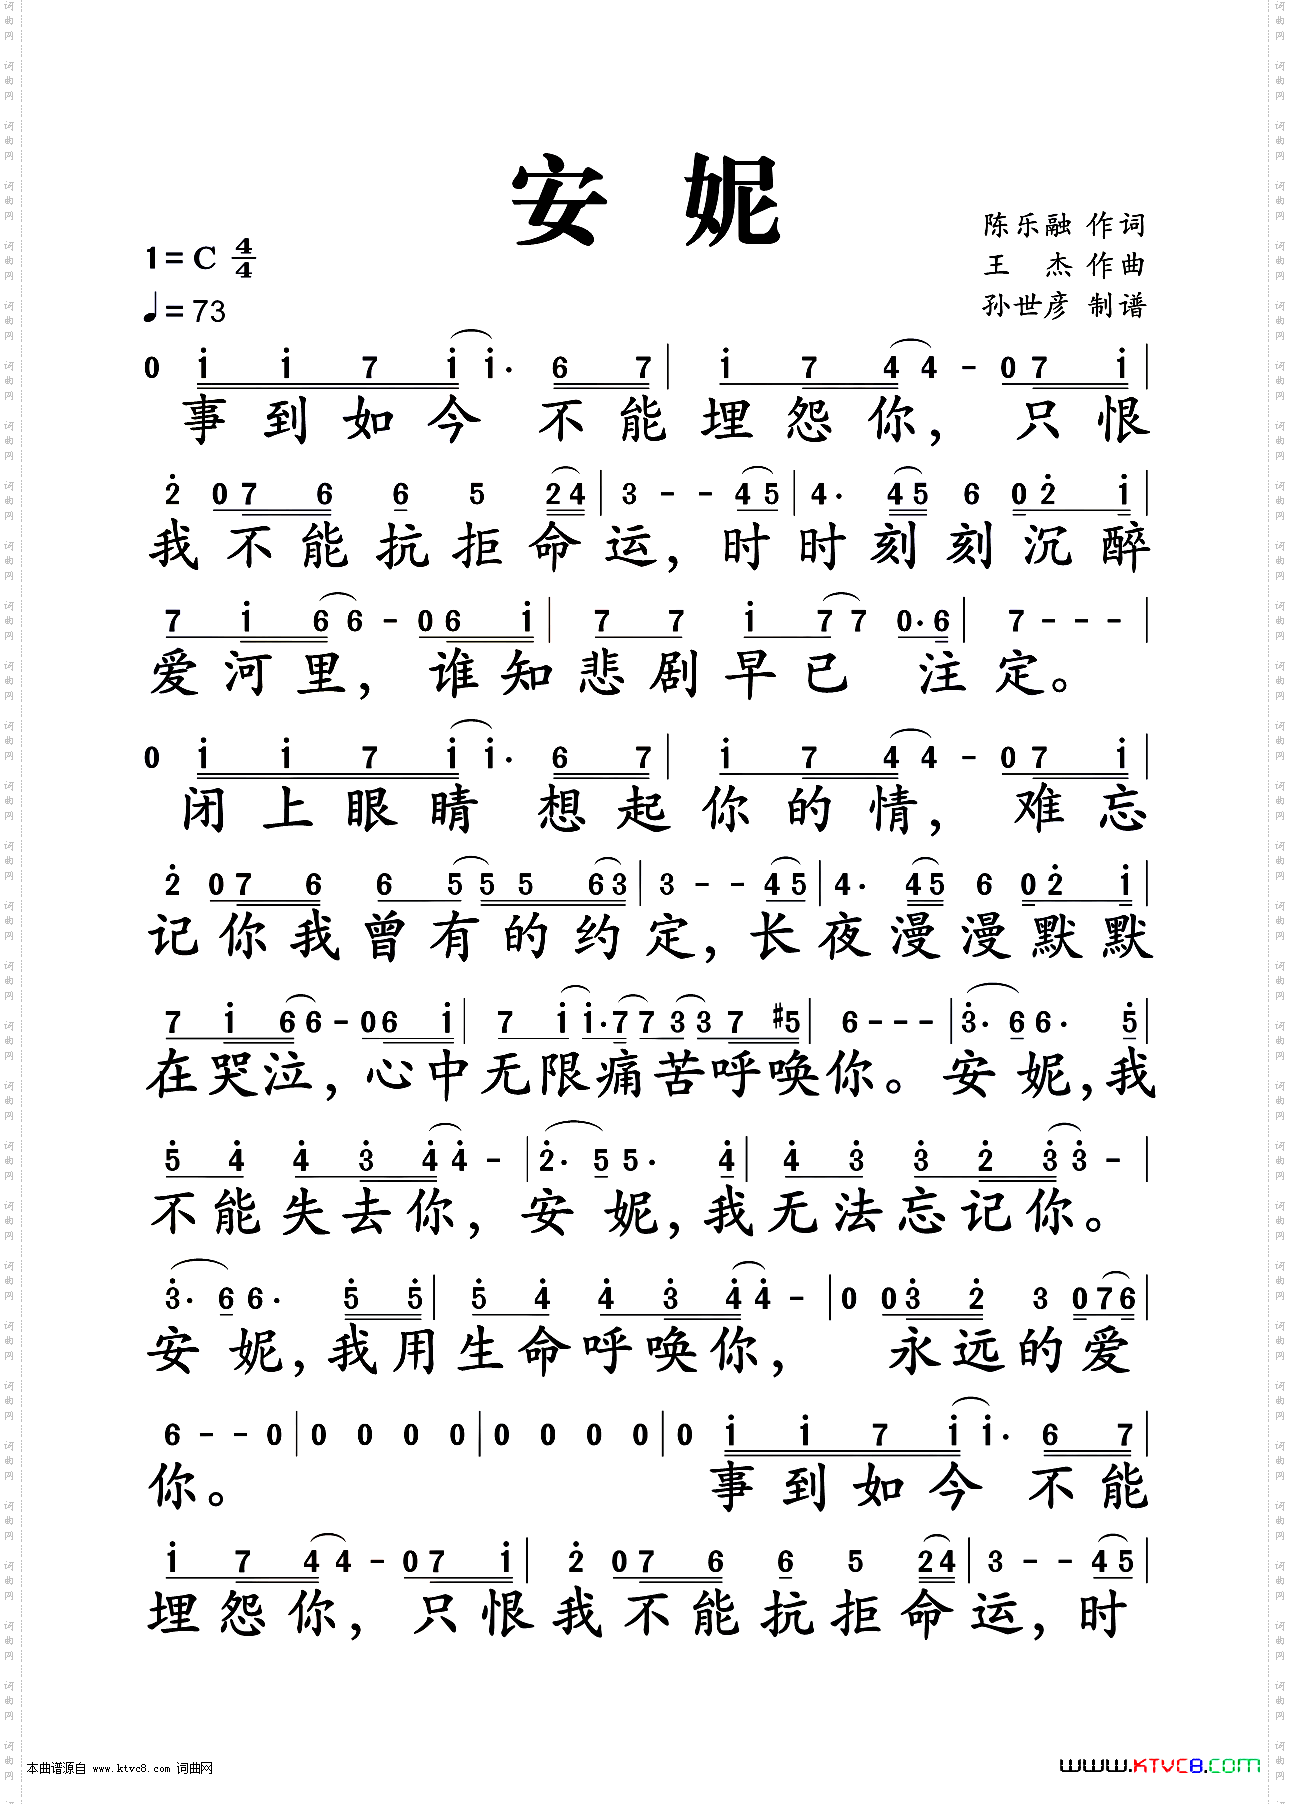 安 妮
1=C 4/4
♩=73
陈乐融 作词
王 杰 作曲
孙世彦 制谱
0 i i 7 i i· 6 7 | i 7 4 4 - 0 7 i |
事到如今 不能埋怨你, 只恨
2 0 7 6 6 5 2 4 | 3 - - 4 5 | 4· 4 5 6 0 2 i |
我不能抗拒命运, 时时刻刻沉醉
7 i 6 6 - 0 6 i | 7 7 i 7 7 0· 6 | 7 - - - |
爱河里, 谁知悲剧早已 注定。
0 i i 7 i i· 6 7 | i 7 4 4 - 0 7 i |
闭上眼睛 想起你的情, 难忘
2 0 7 6 6 5 5 5 6 3 | 3 - - 4 5 | 4· 4 5 6 0 2 i |
记你我曾有的约定, 长夜漫漫默默
7 i 6 6 - 0 6 i | 7 i i· 7 7 3 3 7 #5 | 6 - - - | 3· 6 6· 5 |
在哭泣, 心中无限痛苦呼唤你。安妮, 我
5 4 4 3 4 4 - | 2· 5 5· 4 | 4 3 3 2 3 3 - |
不能失去你, 安妮, 我无法忘记你。
3· 6 6· 5 5 | 5 4 4 3 4 4 - | 0 0 3 2 3 0 7 6 |
安妮, 我用生命呼唤你, 永远的爱
6 - - 0 | 0 0 0 0 | 0 0 0 0 | 0 i i 7 i i· 6 7 |
你。 事到如今 不能
i 7 4 4 - 0 7 i | 2 0 7 6 6 5 2 4 | 3 - - 4 5 |
埋怨你, 只恨我不能抗拒命运, 时
本曲谱源自 www.ktvc8.com 词曲网
www.KTVC8.com